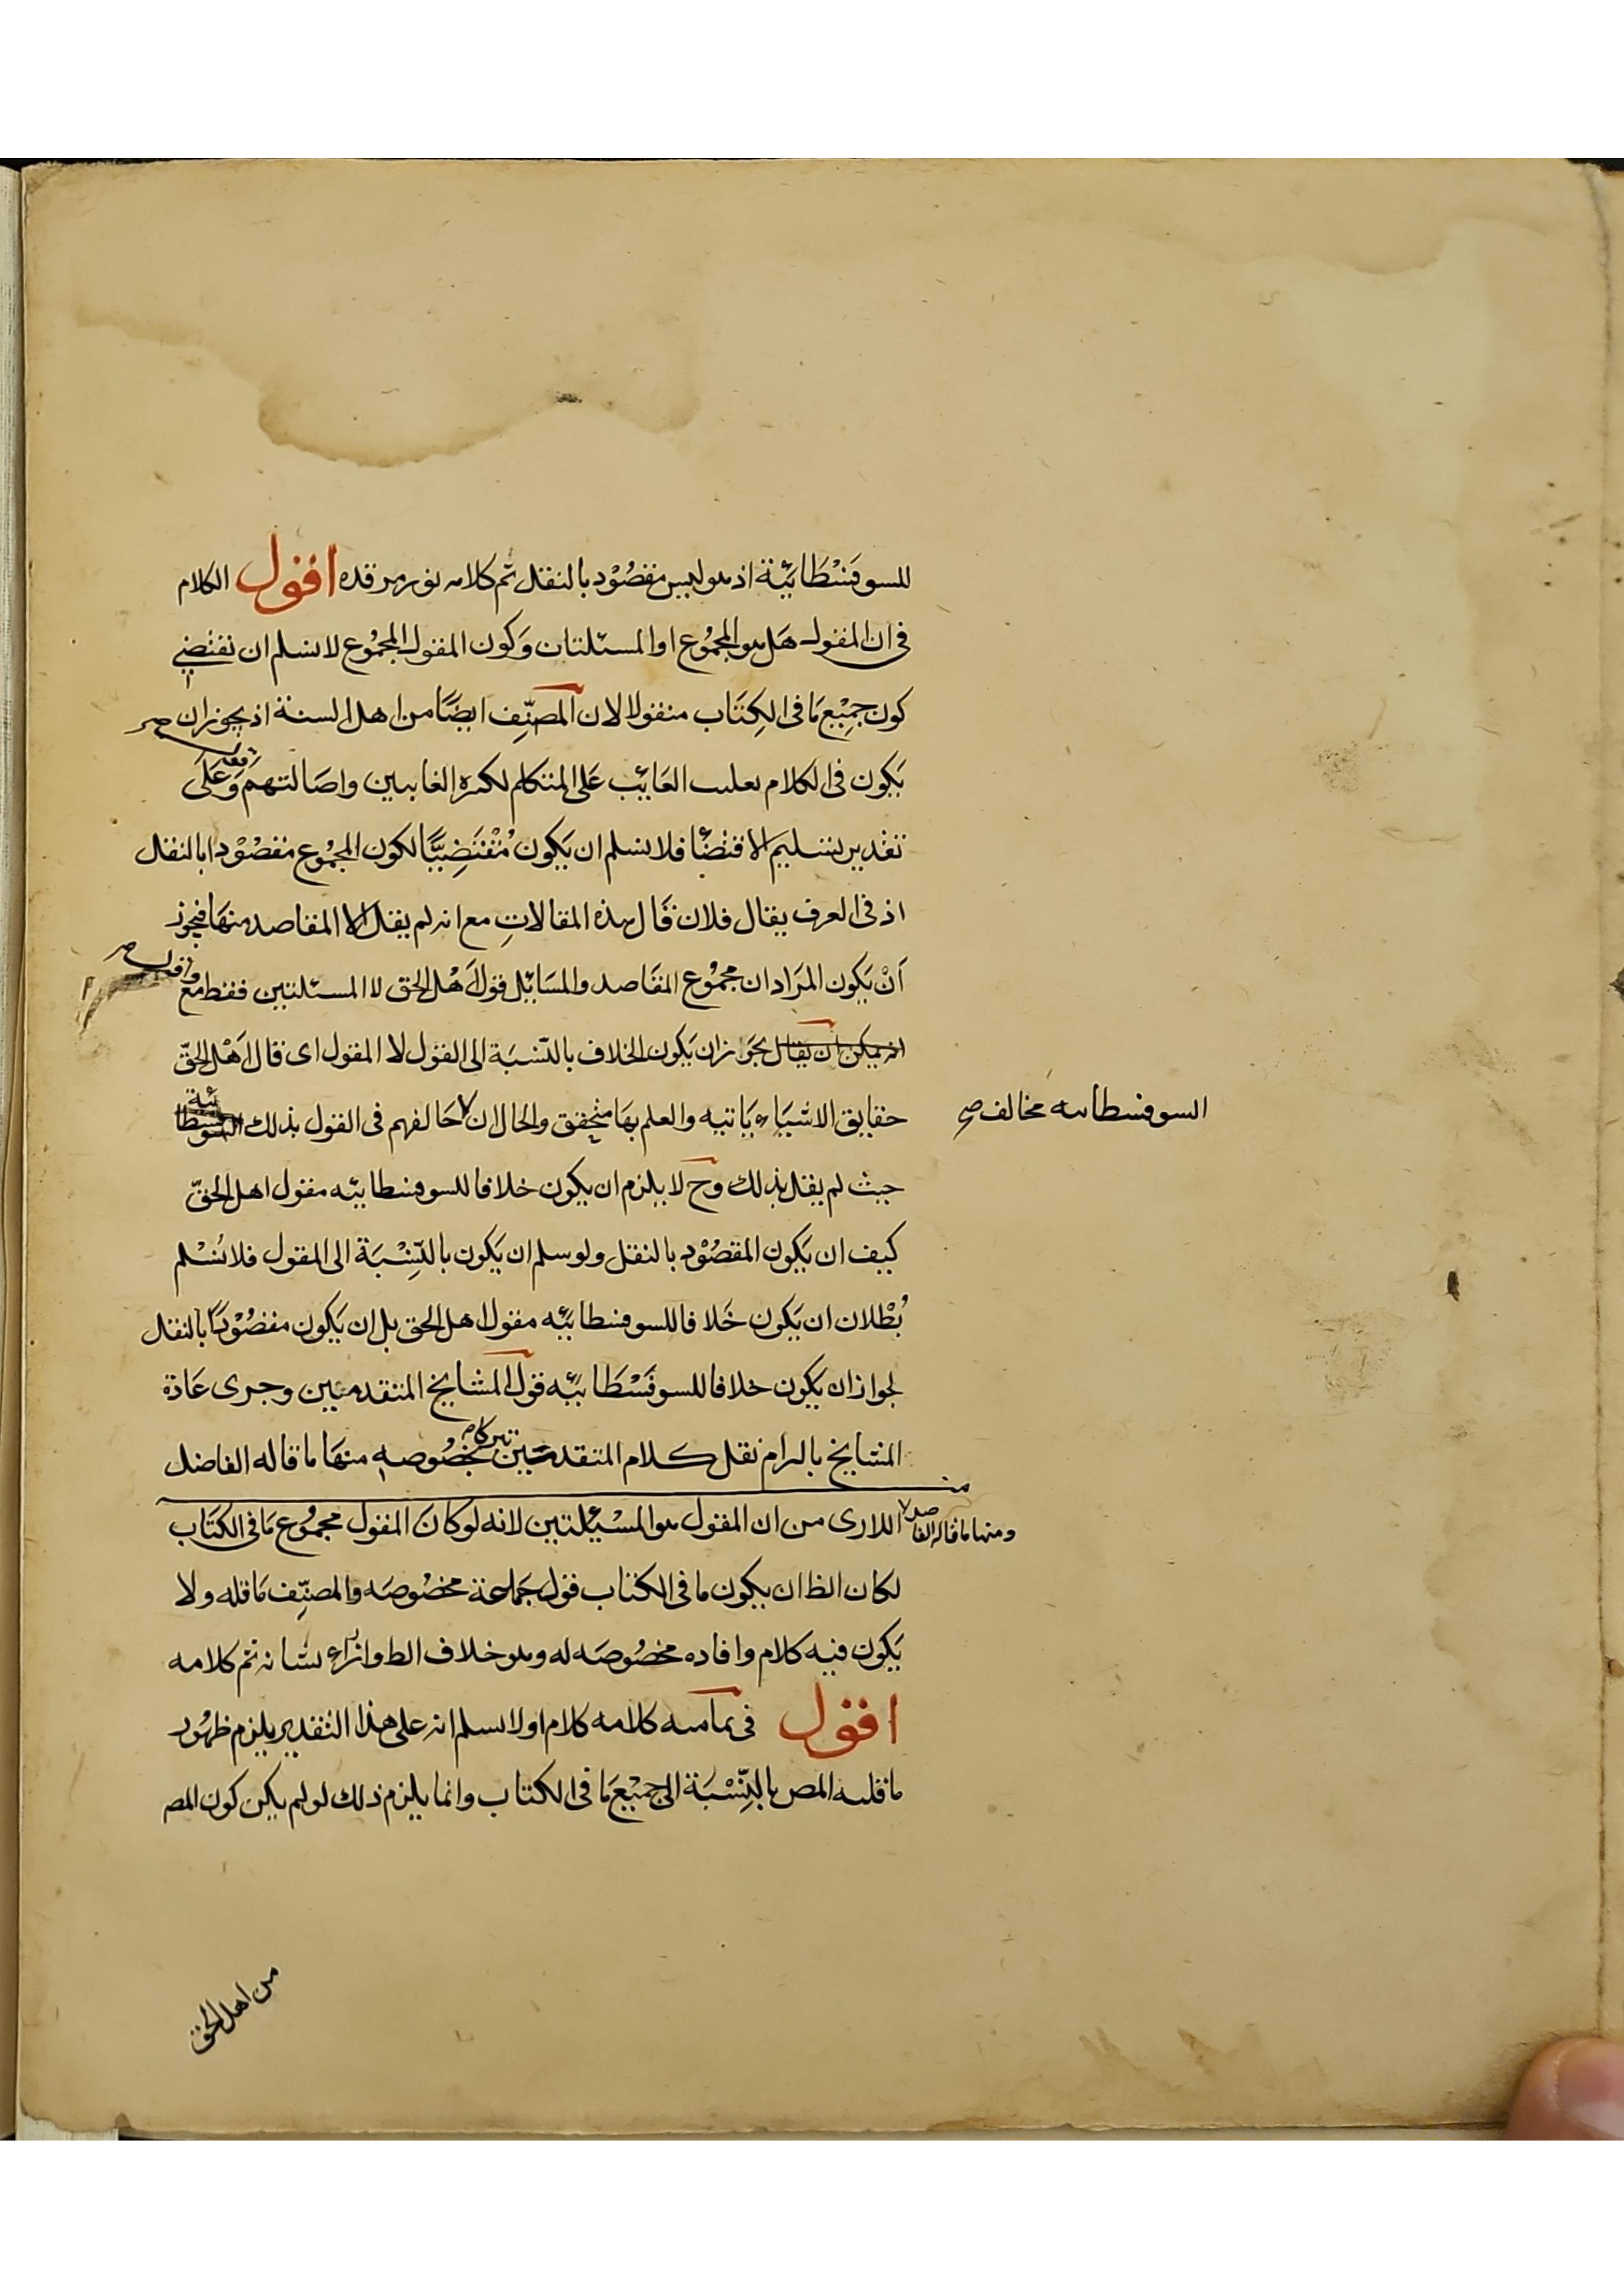 للسوفَسْطَائيَّة اذ هو ليس مقصُوْد بالنقل تم كلامه نور مرقده اقول الكلام
فى ان المقول هَل هو المجمُوع او المسئلتان وَكون المقول المجمُوع لا نسلم ان تقتضى
كون جمِيْع مَا فى الكِتَاب منقولا لان المصَنِّف ايضًا من اهل السنة اذ يجوز ان
يَكون فى الكلام تغليب الغَائِب عَلى المتكلم لكثرة الغايبين واصَالتهم وَعَلى
تقدير تسليم الاقتضَا فلا نسلم ان يَكون مُقْتَضِيًا لكون المجمُوع مقصُوْدا بالنقل
اذ فى العرف يقال فلان قَال هذه المقالاتِ مع انه لم يقل الا المقاصد منهَا فيجوز
اَنْ يَكون المرَاد ان مجمُوع المقَاصد والمسَائل قول اَهْل الحق لا المسئلتين فقط مع
انه يمكن ان يقال يجَوز ان يَكون الخلاف بالنّسْبَة الى القول لا المقول اى قال اَهْل الحَقّ
حقايق الاشيَاء ثَابتيه والعلم بهَا متحقق والحال ان لا خَالفهم فى القول بذلك السوفسطائية
السوفسطاىيه مخالف صح
حيث لم يقل بذلك وح لا يلزم ان يكون خلافا للسوفسطائيه مقول اهل الحَقّ
كيف ان يَكون المقصُوْد بالنقل ولو سلم ان يَكون بالنِّسْبَة الى المقول فلا نُسْلم
بُطْلان ان يَكون خَلافا للسوفسطائيَّه مقول اهل الحق بل ان يَكون مقصُوْدًا بالنقل
لجواز ان يَكون خلافا للسوفَسْطَائيَّه قول المشايخ المتقدمين وجرى عَادة
المشايخ بالزام نقل كلام المتقدمين تبركا بخصُوصه منهَا ما قاله الفاضل
ومنها ما قاله الفاضل
اللارى من ان المقول هو المسْئلتين لانه لو كانَ المقول مجمُوع مَا فى الكتَاب
لكان الظ ان يكون ما فى الكتاب قول جَماعة مخصُوصَه والمصنِّف نَاقله ولا
يَكون فيه كلام وافاده مخصُوصَه له وهو خلاف الظ وازراء بشانه تم كلامه
اقول فى تماميه كلامه كلام اولا نسلم انه على هذا التقدير يلزم ظهُور
ناقليه المص بالنِّسْبَة الى جمِيْع مَا فى الكتاب وانما يلزم ذلك لو لم يكن كون المص
من اهل الحق